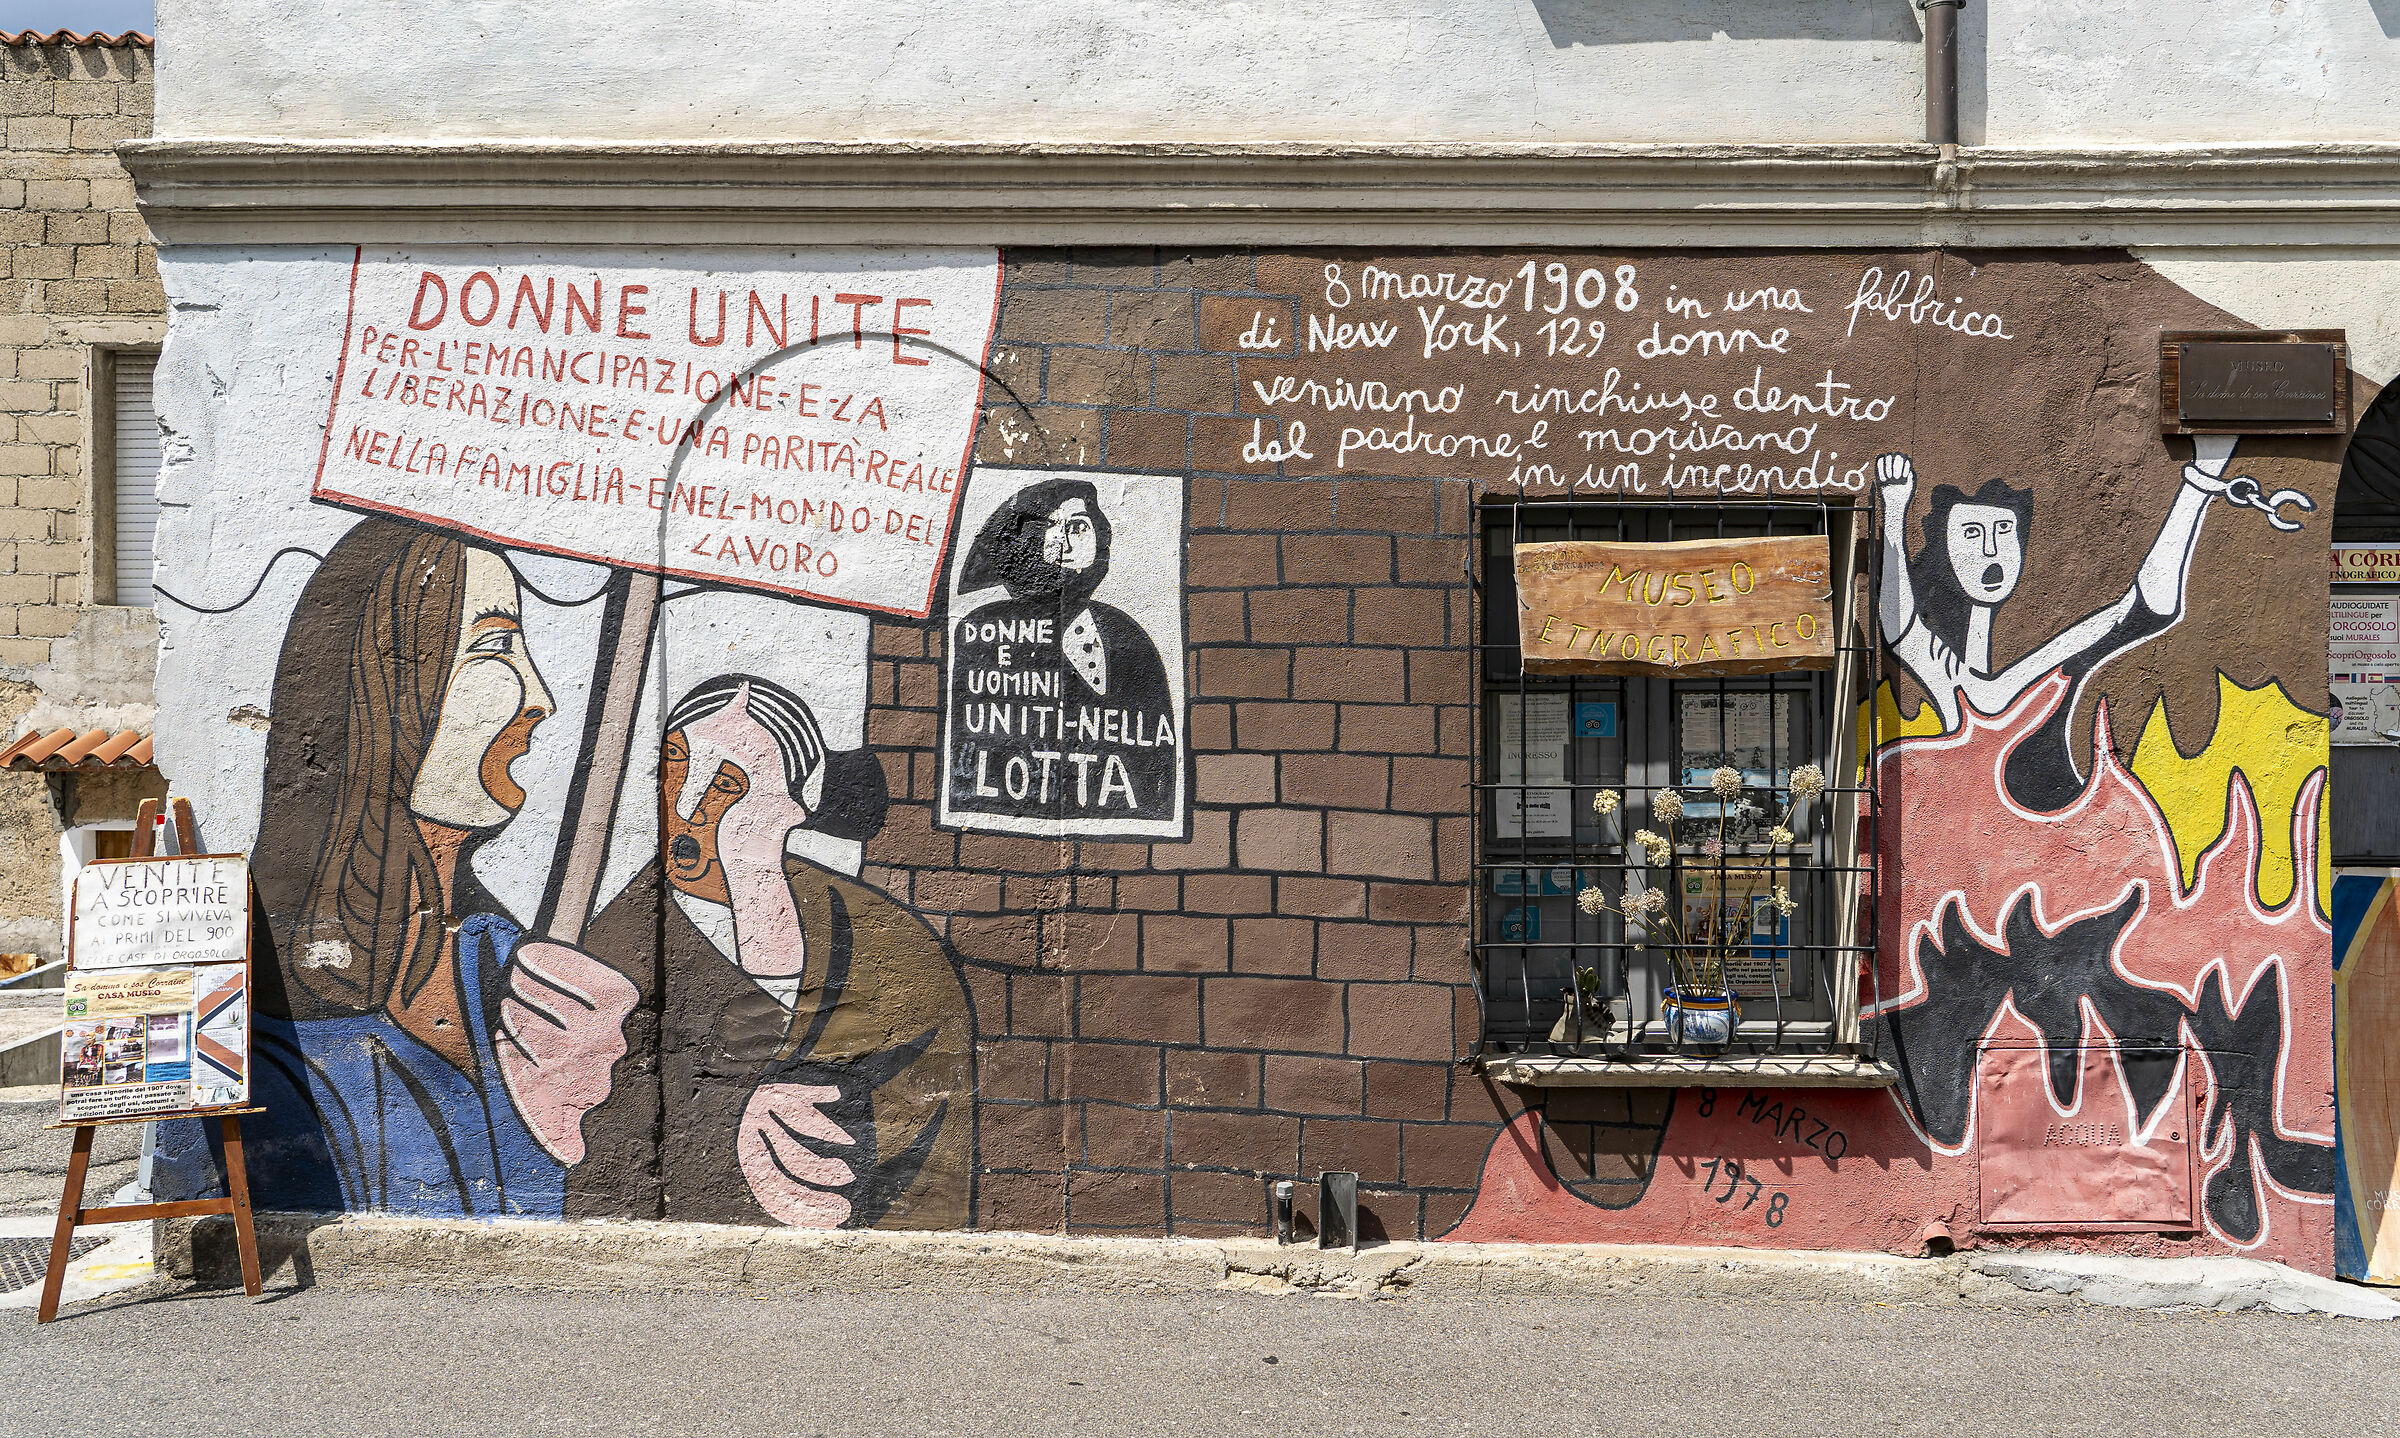 DONNE UNITE
PER-L'EMANCIPAZIONE-E-LA
LIBERAZIONE-E-UNA PARITÀ-REALE
NELLA FAMIGLIA-E NEL-MONDO-DEL
LAVORO
DONNE
E
UOMINI
UNITI-NELLA
LOTTA
8 marzo 1908 in una fabbrica
di New York, 129 donne
venivano rinchiuse dentro
dal padrone e morivano
in un incendio
MUSEO
MUSEO
ETNOGRAFICO
INGRESSO
CASA MUSEO
8 MARZO
1978
ACQUA
VENITE
A SCOPRIRE
COME SI VIVEVA
AI PRIMI DEL 900
NELLE CASE DI ORGOSOLO
Sa domo e sos Corraine
CASA MUSEO
una casa signorile del 1907 dove
potrai fare un tuffo nel passato alla
scoperta degli usi, costumi e
tradizioni della Orgosolo antica
A CORR
TNOGRAFICO
AUDIOGUIDATE
LTILINGUE per
ORGOSOLO
suoi MURALES
ScopriOrgosolo